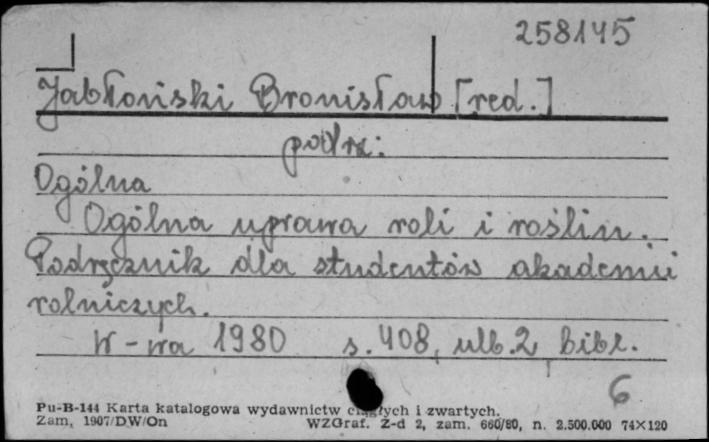 258145
Jabłoński Bronisław [red.]
patrz:
Ogólna
Ogólna uprawa roli i roślin.
Podręcznik dla studentów akademii
rolniczych.
W-wa 1980 s. 408, ulb. 2, bibl.
6
Pu-B-144 Karta katalogowa wydawnictw ciągłych i zwartych.
Zam. 1907/DW/On WZGraf. Z-d 2, zam. 660/80, n. 2.500.000 74×120